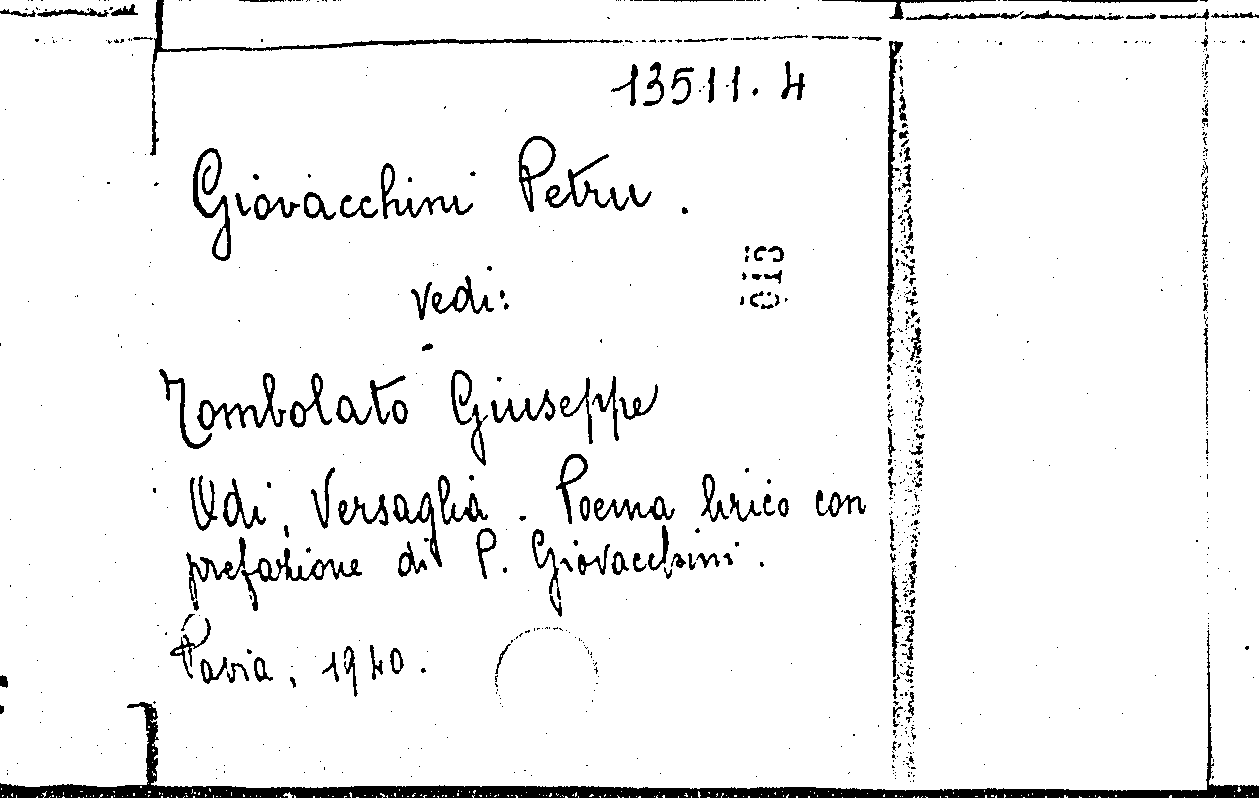 13511.4
Giovacchini Petru.
vedi:
Tombolato Giuseppe
Odi, Versaglia. Poema lirico con
prefazione di P. Giovacchini.
Pavia, 1940.